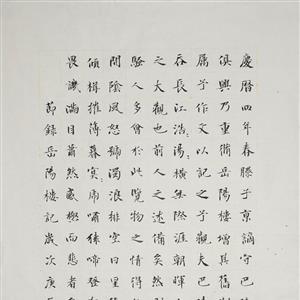 慶曆四年春滕子京謫守巴
俱興乃重修岳陽樓增其舊
属予作文以記之予觀夫巴
吞長江浩〻湯〻橫無際涯朝暉
之大觀也前人之述備矣然
騷人多會於此覽物之情得
間陰風怒號濁浪排空日星
傾楫摧薄暮冥〻虎嘯猿啼登
畏譏滿目蕭然感極而悲者
節錄岳陽樓記歲次庚